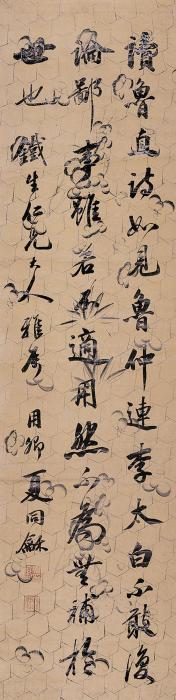 讀魯直詩如見魯仲連李太白不敢復
論鄙事雖若不適用然不為無補於
世也 鐵生仁兄大人雅屬 用卿夏同龢